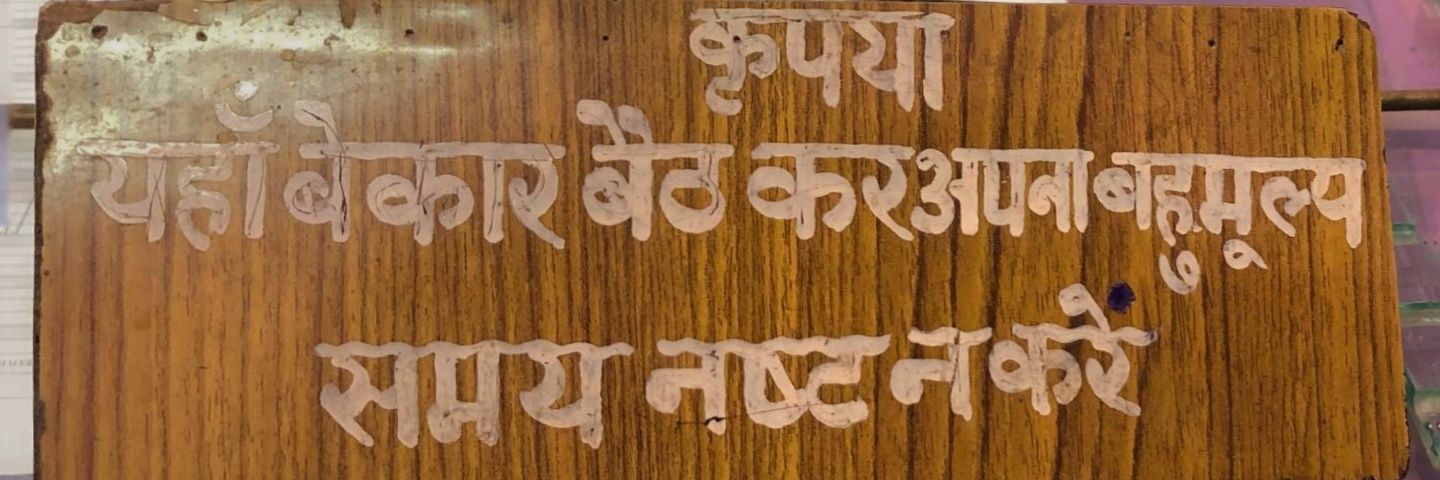 कृपया
यहाँ बेकार बैठ कर अपना बहुमूल्य
समय नष्ट न करें